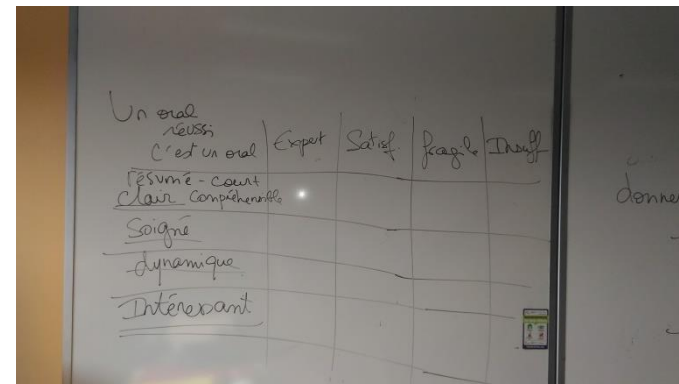 Un oral
réussi
C'est un oral
Expert
Satisf.
fragile
Insuff
résumé - court
clair compréhensible
Soigné
dynamique
Intéressant
donne